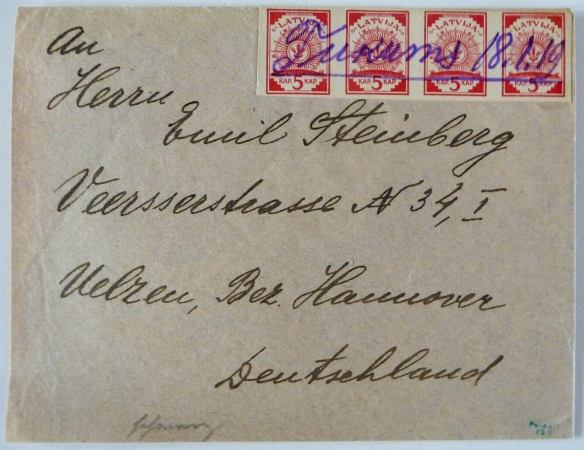 LATVIJA LATVIJA LATVIJA LATVIJA
Tukums 18.1.19
KAP. 5 KAP. KAP. 5 KAP. KAP. 5 KAP. KAP. 5 KAP.
An
Herrn
Emil Steinberg
Veersserstrasse N 34, I
Uelzen, Bez. Hannover
Deutschland